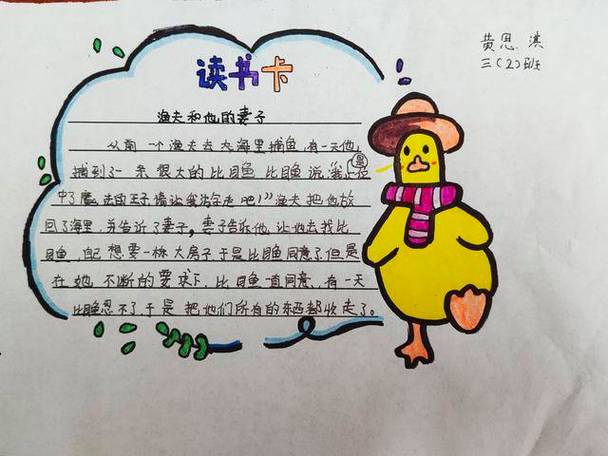 黄思淇
三（2）班
读书卡
渔夫和他的妻子
从前一个渔夫去大海里捕鱼，有一天他，
捕到了一条很大的比目鱼 比目鱼说："我是一位
中了魔法的王子请让我游走吧！"渔夫把他放
回了海里，并告诉了妻子，妻子告诉他，让他去找比
目鱼，自己想要一栋大房子于是比目鱼同意了但是
在她不断的要求下，比目鱼一直同意，有一天
比目鱼忍不了，于是把他们所有的东西都收走了。